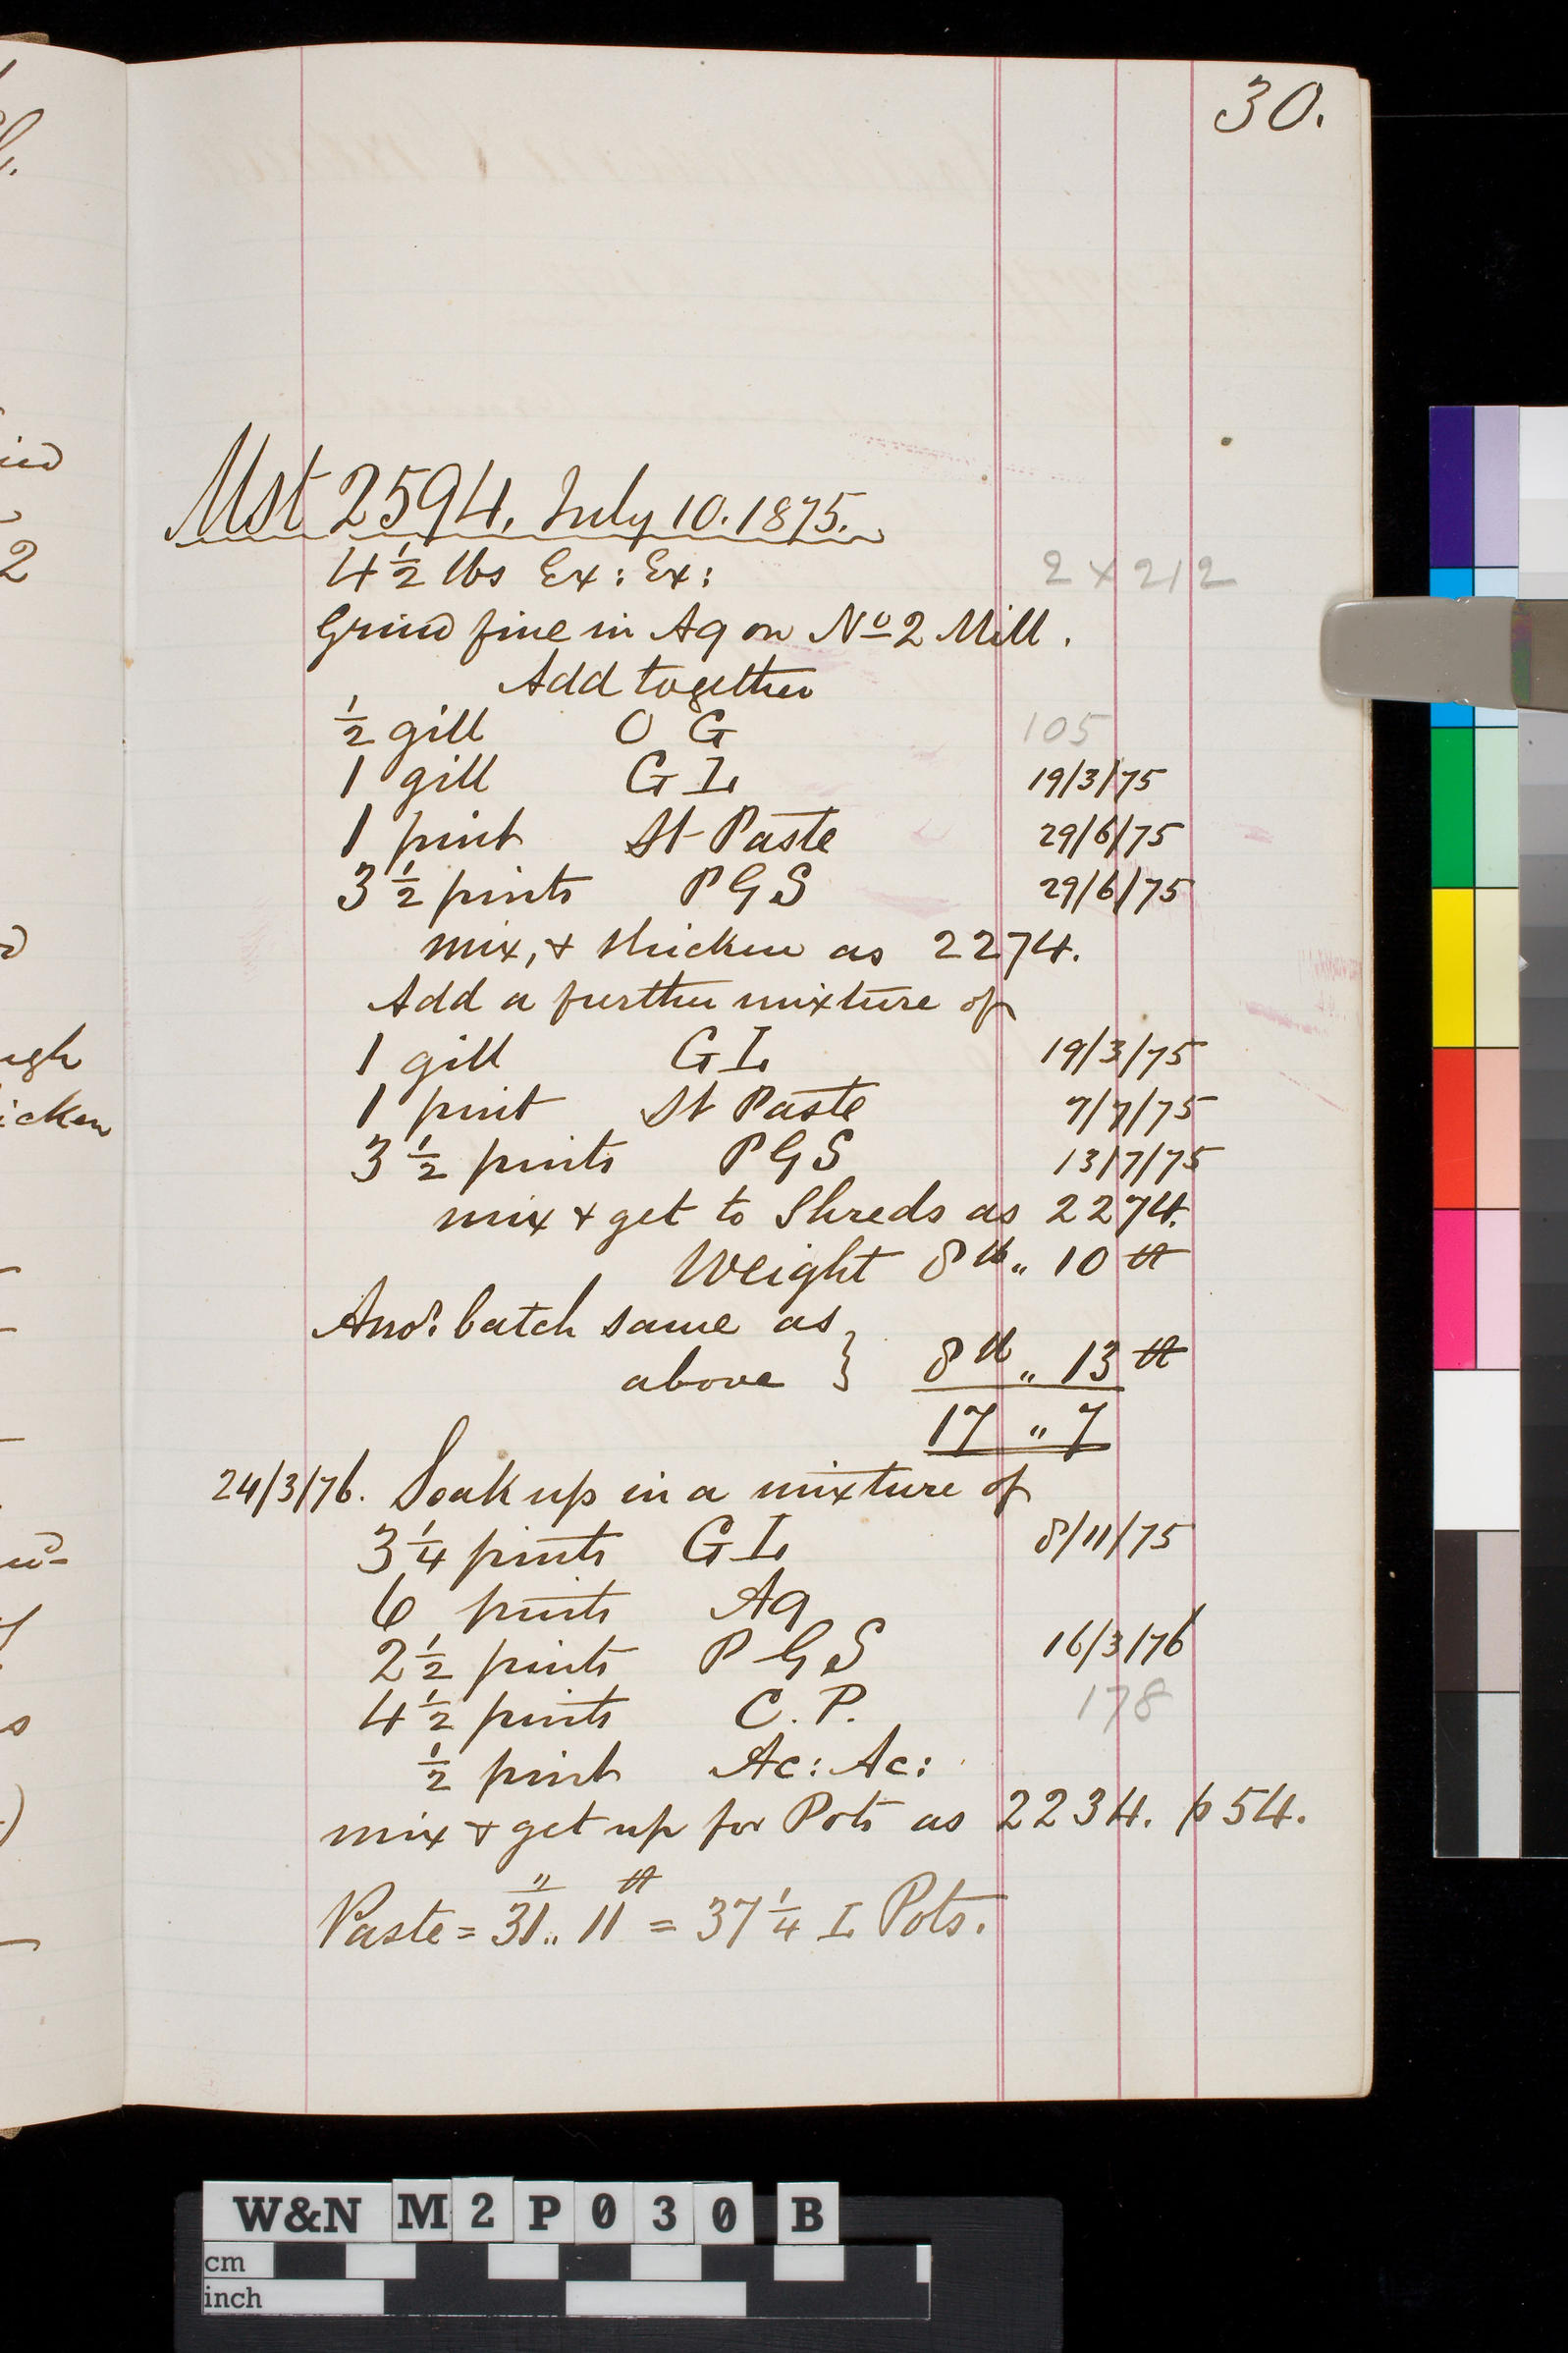 30.
Mst 2594. July 10. 1875.
4 1/2 lbs Ex: Ex: 2 x 212
Grind fine in Aq on No 2 Mill.
Add together
1/2 gill O G 105
1 gill G L 19/3/75
1 pint St Paste 29/6/75
3 1/2 pints P G S 29/6/75
mix, + thicken as 2274.
Add a further mixture of
1 gill G L 19/3/75
1 pint St Paste 7/7/75
3 1/2 pints P G S 13/7/75
mix + get to Shreds as 2274.
Weight 8 lb „ 10
Anor. batch same as
above } 8 lb „ 13
17 „ 7
24/3/76. Soak up in a mixture of
3 1/4 pints G L 8/11/75
6 pints Aq
2 1/2 pints P G S 16/3/76
4 1/2 pints C. P. 178
1/2 pint Ac: Ac:
mix + get up for Pots as 2234. p 54.
Paste = 31 „ 11 = 37 1/4 L Pots.
W&N M2P030 B
cm
inch